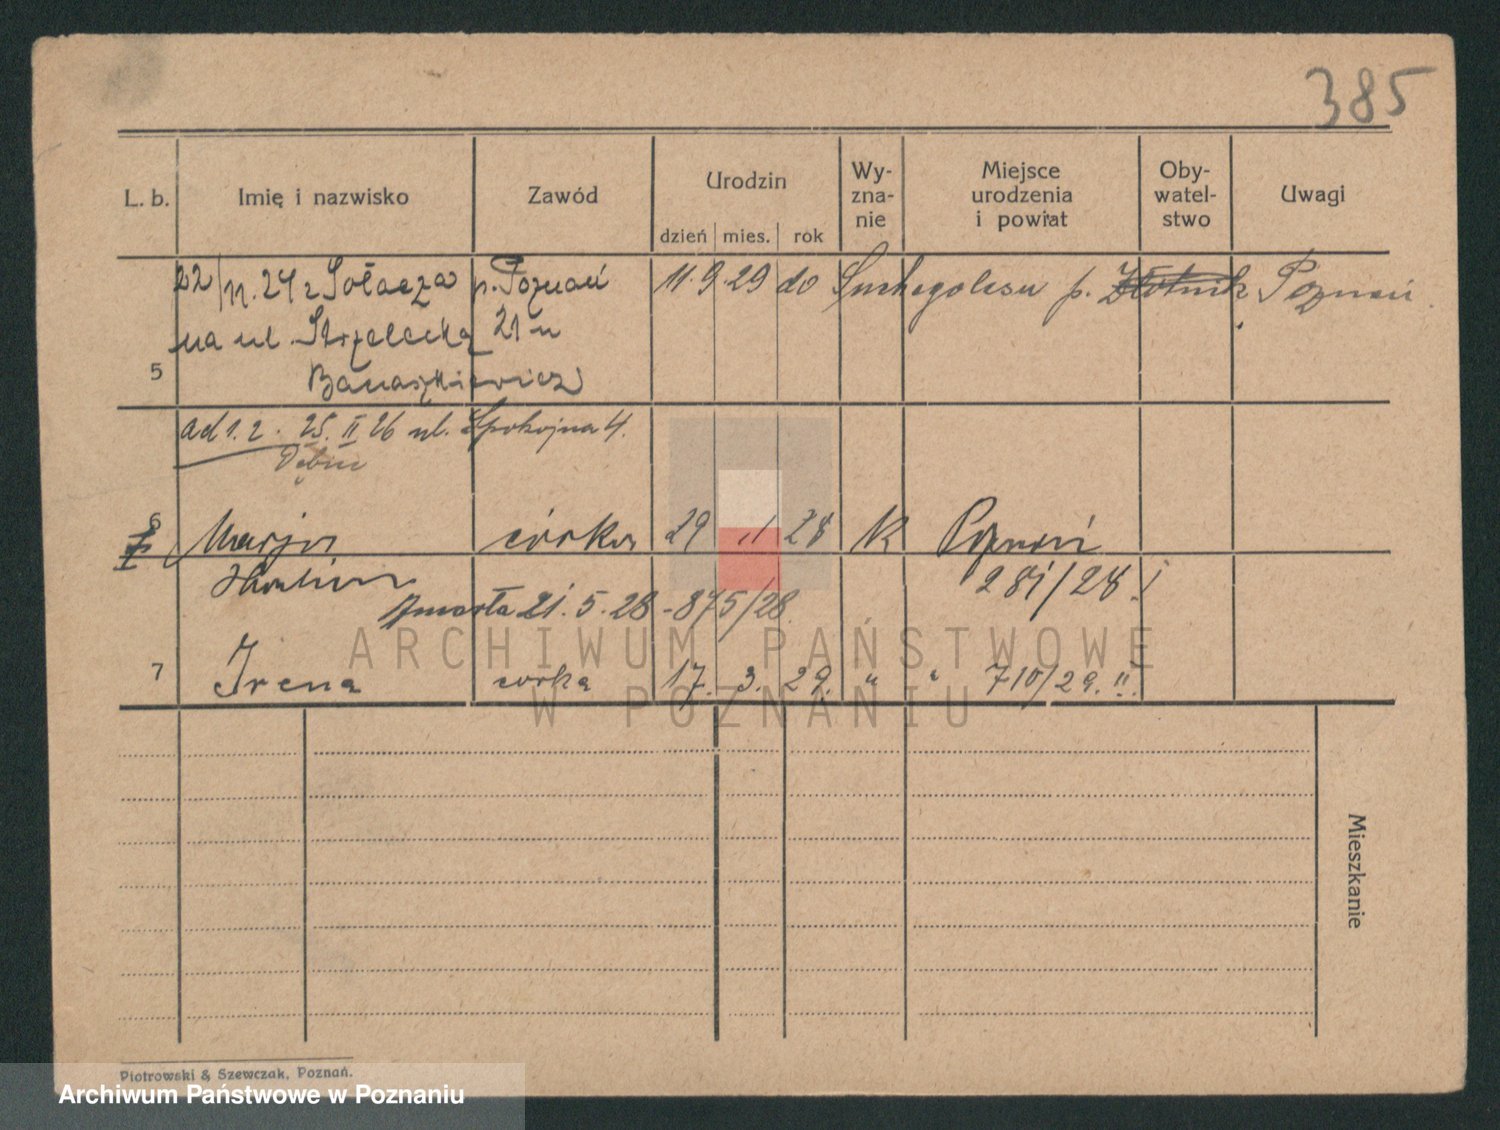 385
L. b. Imię i nazwisko Zawód Urodzin Wy-zna-nie Miejsce urodzenia i powiat Oby-watel-stwo Uwagi
dzień mies. rok
22/11.24 z Sołacza p. Poznań 11.9.29 do Suchegolasu p. Złotnik Poznań
na ul. Strzelecką 21 u
5 Banaszkiewicz
ad 1.2. 25.II 26 ul. Spokojna 4.
Dębiec
6 Marja córka 29 1 28 K Poznań
281/28 I
zmarła 21.5.28 - 875/28.
7 Irena córka 17. 3. 29. " " 710/29. II.
Mieszkanie
ARCHIWUM PAŃSTWOWE
W POZNANIU
Piotrowski & Szewczak, Poznań.
Archiwum Państwowe w Poznaniu